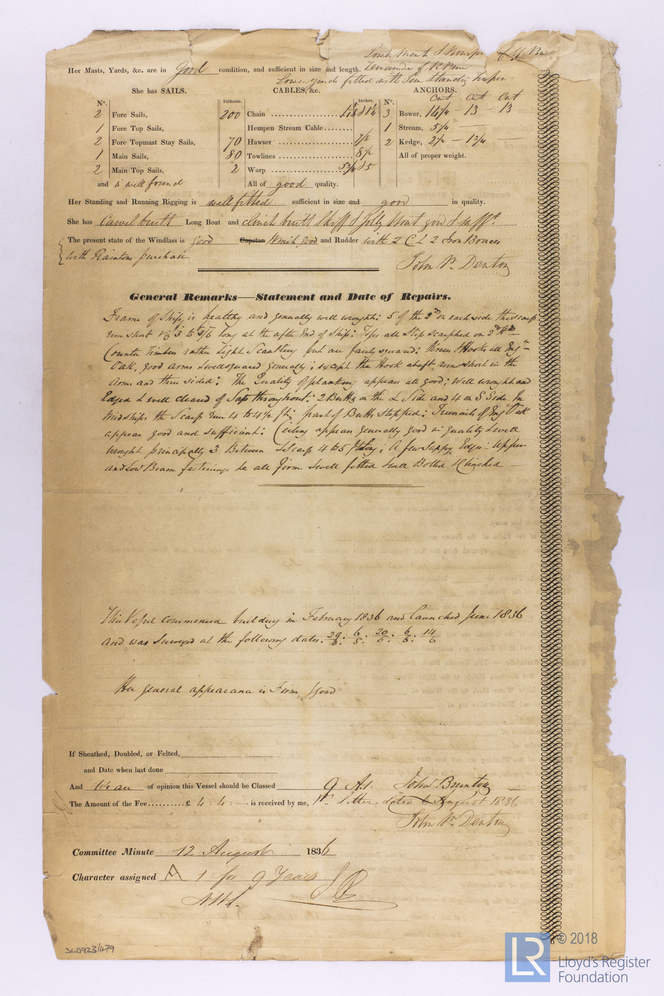 Her Masts, Yards, &c. are in good condition, and sufficient in size and length.
She has SAILS. CABLES, &c. ANCHORS.
N°. Fathoms. Inches. N°. Cwt Cwt Cwt
2 Fore Sails, 200 Chain 3 Bower, 13 - 13
1 Fore Top Sails, Hempen Stream Cable 1 Stream,
2 Fore Topmast Stay Sails, 70 Hawser 2 Kedge,
1 Main Sails, 80 Towlines All of proper weight.
2 Main Top Sails, 2 Warp
and is well found All of good quality.
Her Standing and Running Rigging is well fitted sufficient in size and good in quality.
She has Carvel built Long Boat and clinch built Skiff & Jolly Boat good & suff.t
The present state of the Windlass is good Capstan Winch good and Rudder with 2 Iron Braces
with purchase
John W. Denton
General Remarks—Statement and Date of Repairs.
Frame of Ship, is healthy and generally well wrought: 5 of the 2nd on each side the scarp
run short 5 to long at the after end of Ship: Tops all Ship scarphed on
Counter timbers rather light Scantling but are fairly squared: Hooks all Eng
Oak, good arms & well squared generally; except the Hook abaft arm short in the
arms and thin sided: The Quality of planking appear all good; Well wrought and
Edged & well cleared of Sap throughout: 2 Butts on the L Side and 4 on S. Side In
Midships the Scarp run 4 to 4½ ft; part of Butts Stepped: Treenails of Eng Oak
appear good and sufficient: Ceiling appear generally good in quality & well
wrought principally 3 Between & Scarp 4 to 5 ft long; A few Sappy Edges Upper
and Low Beam fastenings be all firm & well fitted & well Bolted & Clinched
This Vessel commenced building in February 1836 and Launched June 1836
and was Surveyed at the following dates.
Her general appearance is Firm & good
If Sheathed, Doubled, or Felted,
and Date when last done
And We are of opinion this Vessel should be Classed 9 A1. John Brunton
The Amount of the Fee £ 4 4 - is received by me, Letter dated 6 August 1836
John W. Denton
Committee Minute 12 August 1836
Character assigned A 1 for 9 Years
SLD923/479
LR © 2018
Lloyd's Register
Foundation